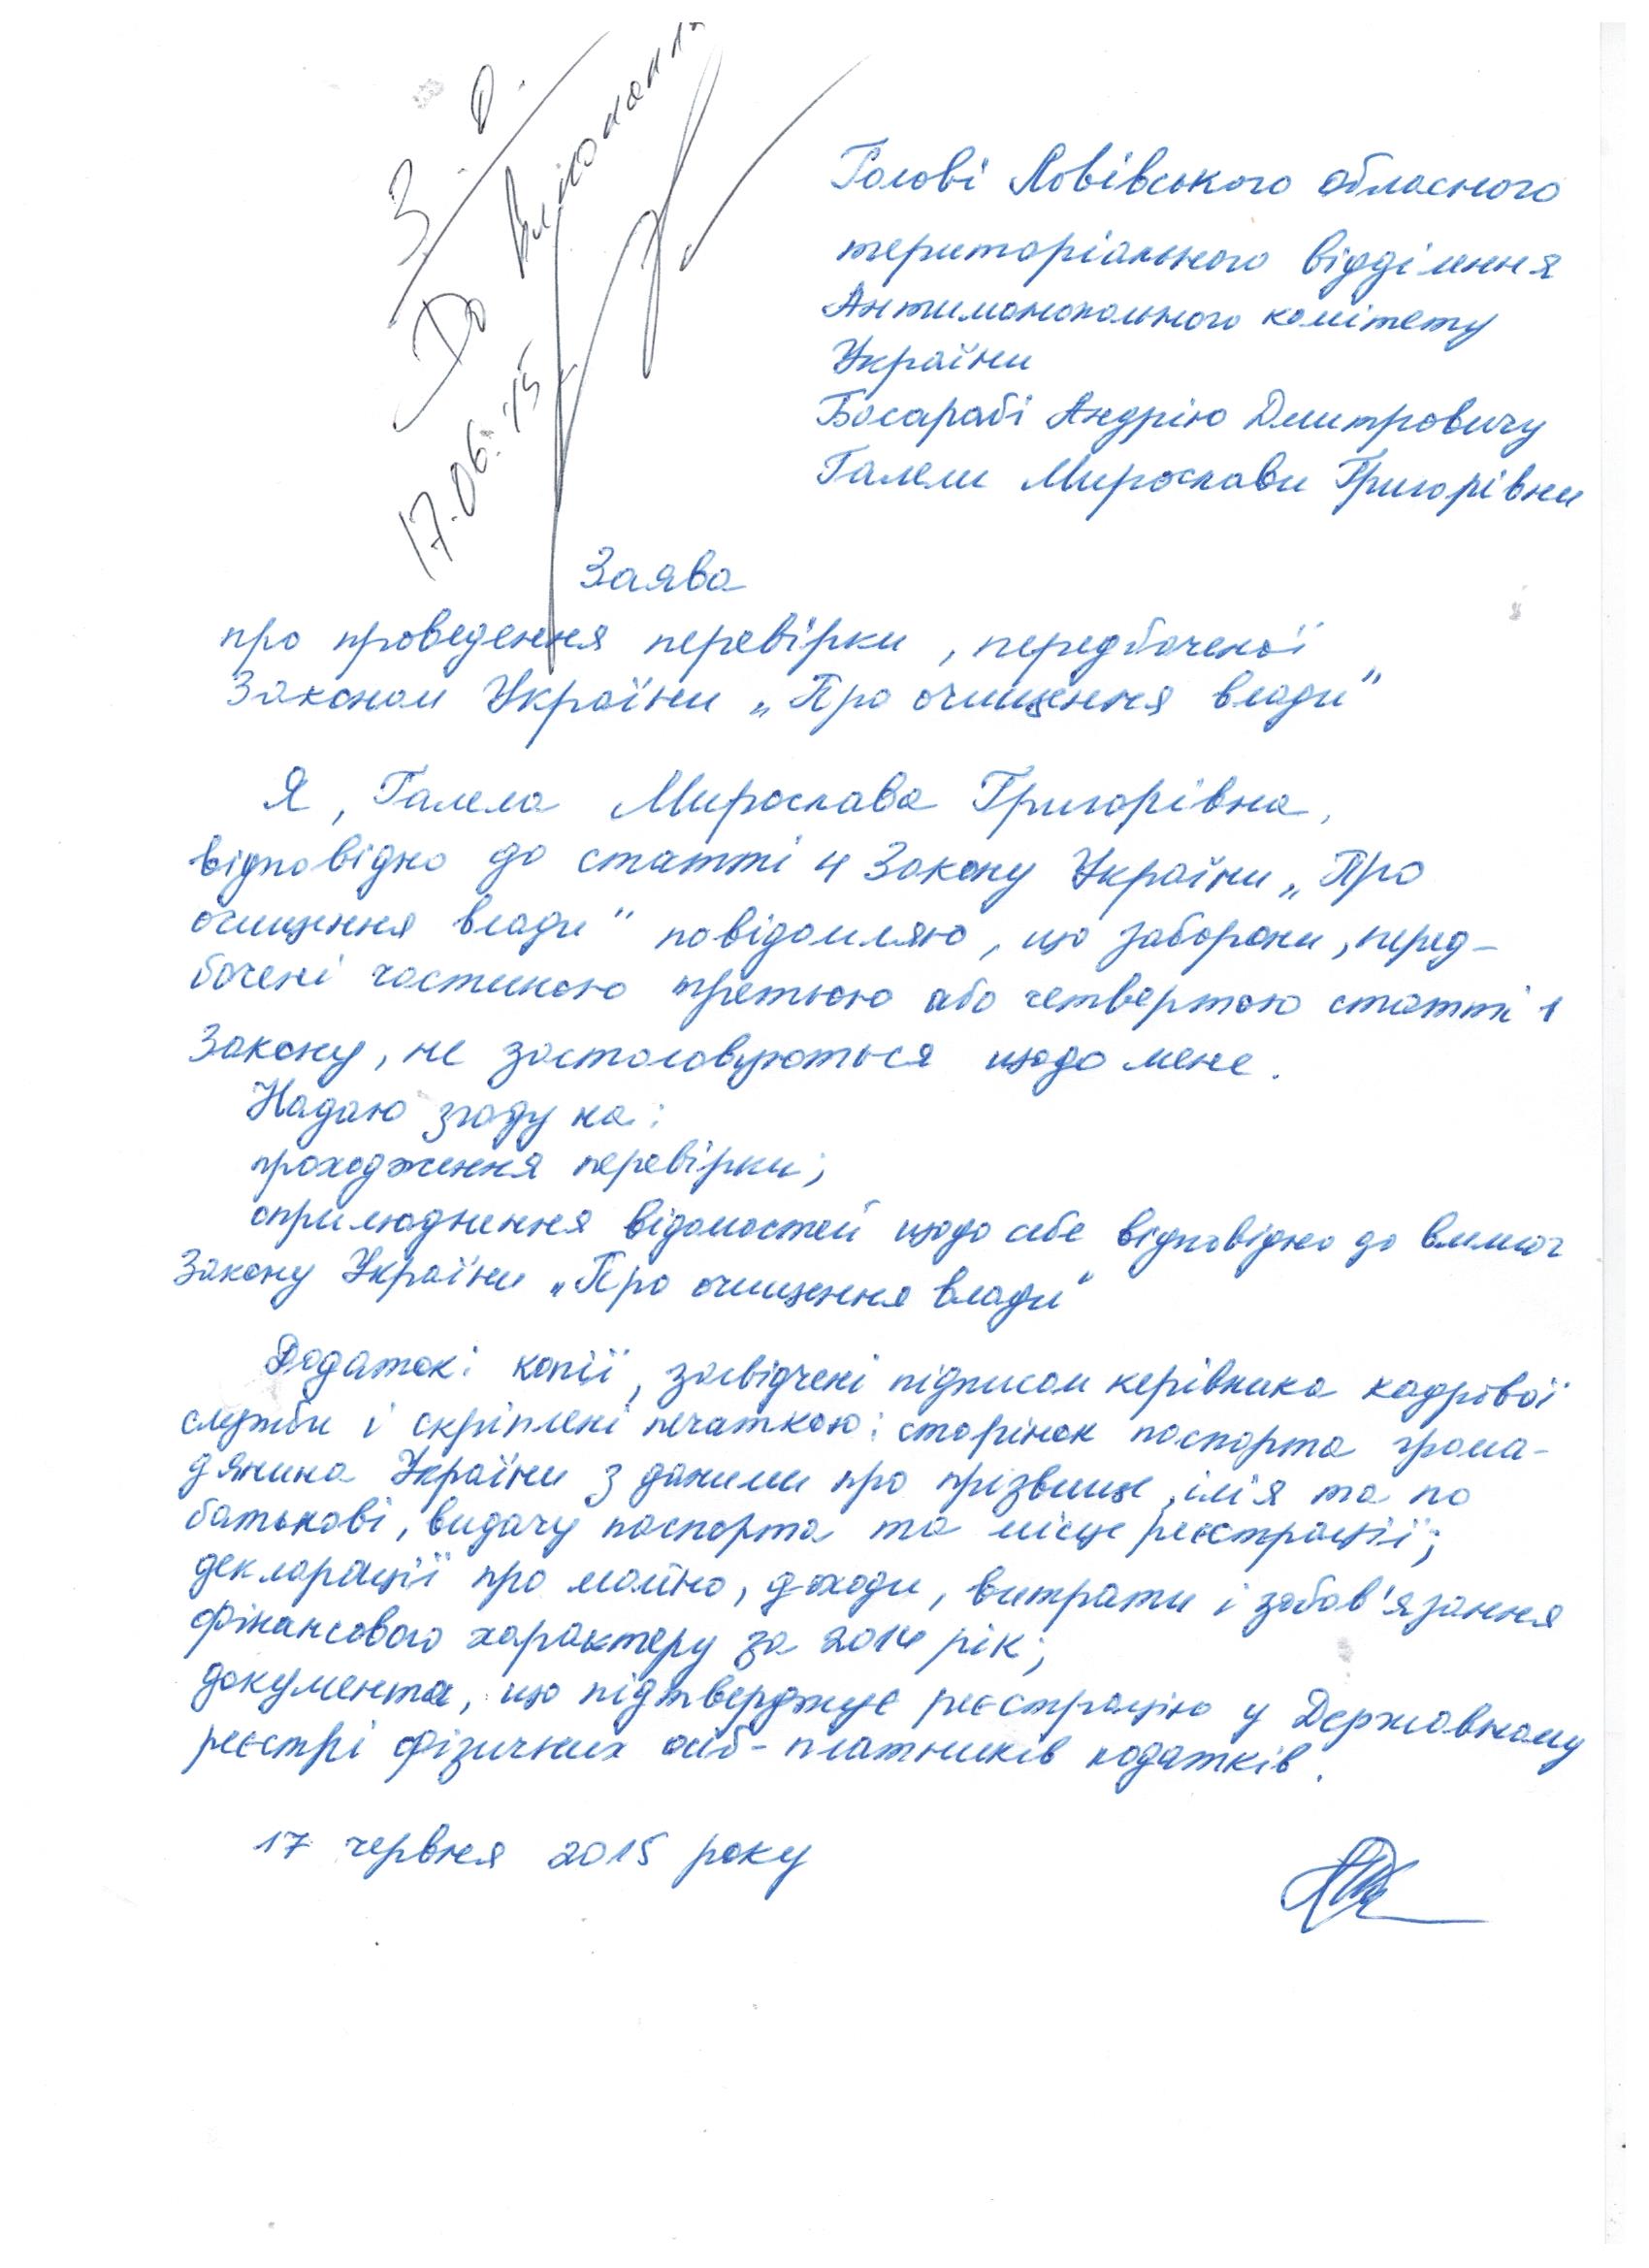 З. О.
До виконання
17.06.15
Голові Львівського обласного
територіального відділення
Антимонопольного комітету
України
Босарабі Андрію Дмитровичу
Галели Мирослави Григорівни
Заява
про проведення перевірки, передбаченої
Законом України „Про очищення влади"
Я, Галела Мирослава Григорівна,
відповідно до статті 4 Закону України „Про
очищення влади" повідомляю, що заборони, перед-
бачені частиною третьою або четвертою статті 1
Закону, не застосовуються щодо мене.
Надаю згоду на:
проходження перевірки;
оприлюднення відомостей щодо себе відповідно до вимог
Закону України „Про очищення влади"
Додаток: копії, засвідчені підписом керівника кадрової
служби і скріплені печаткою: сторінок паспорта грома-
дянина України з даними про прізвище, ім'я та по
батькові, видачу паспорта та місце реєстрації;
декларації про майно, доходи, витрати і зобов'язання
фінансового характеру за 2014 рік;
документа, що підтверджує реєстрацію у Державному
реєстрі фізичних осіб-платників податків.
17 червня 2015 року